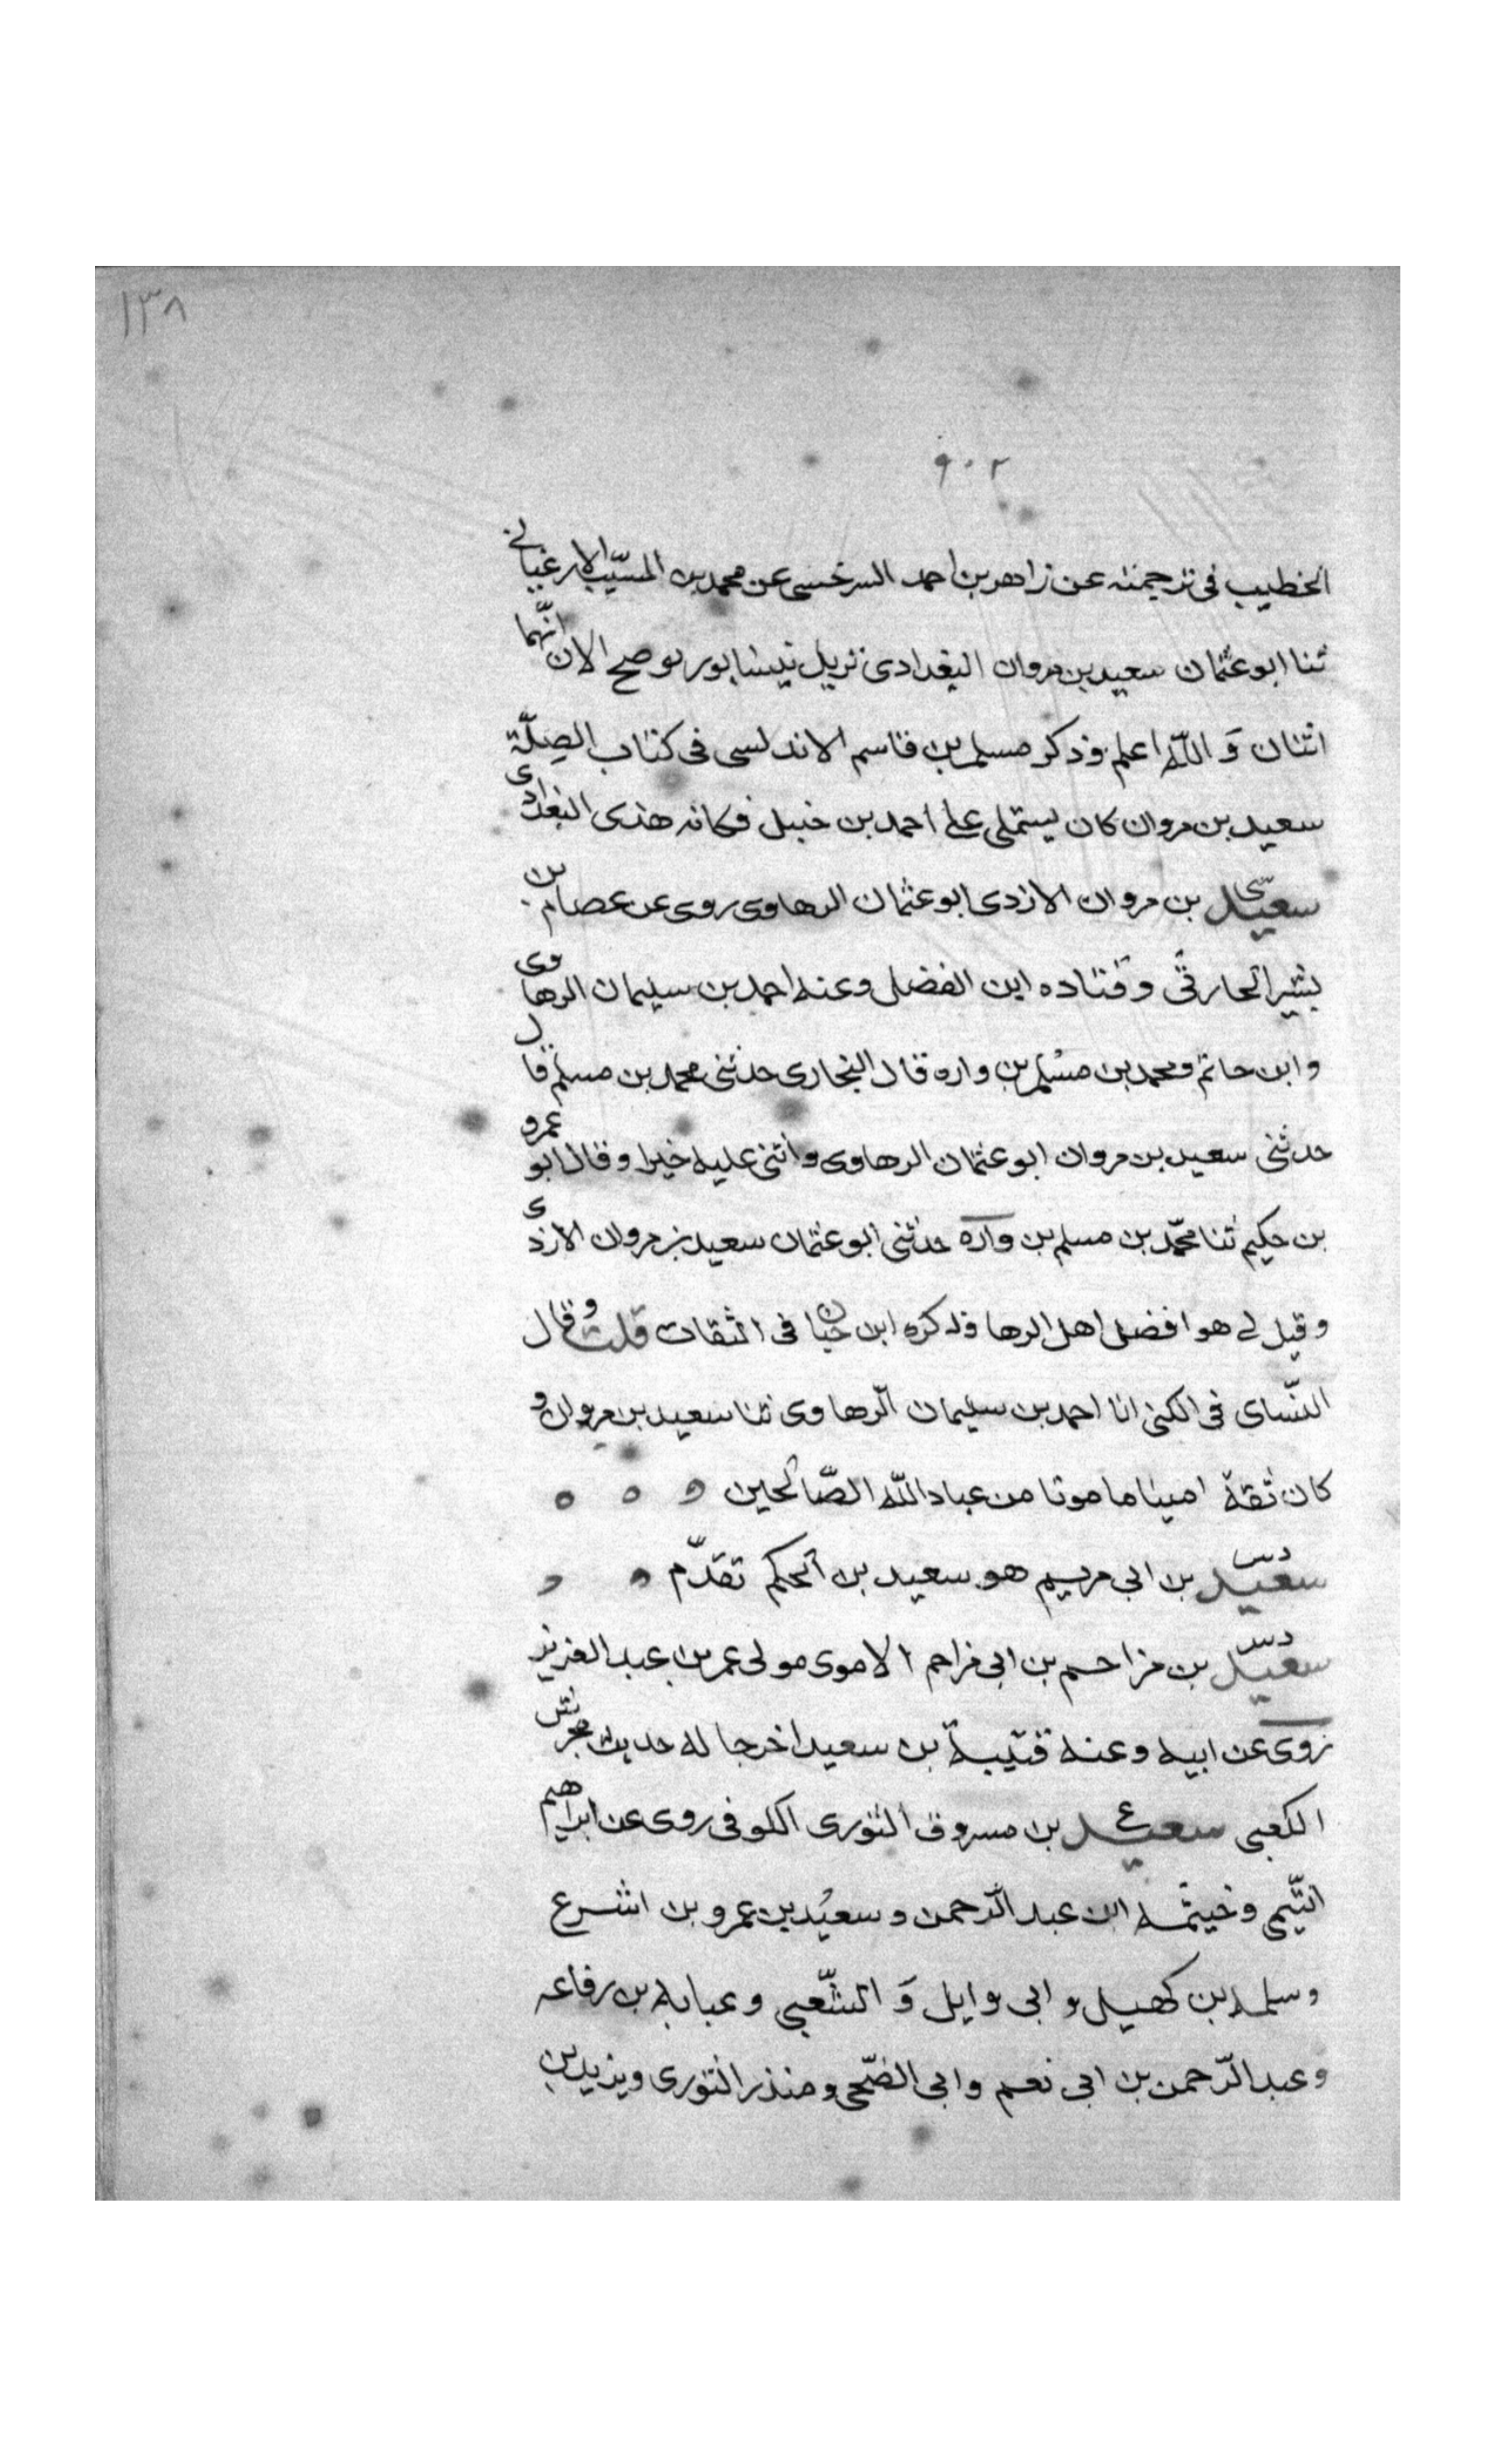 ١٣٨
٩٠٢
الخطيب في ترجمته عن زاهر بن احمد السرخسي عن محمد بن المسيّب الارغياني
ثنا ابو عثمان سعيد بن مروان البغدادى نزيل نيسابور فوضح الان انّهما
اثنان وَاللّه اعلم وذكر مسلم بن قاسم الاندلسى فى كتاب الصِلّة
سعيد بن مروان كان يستملى على احمد بن حنبل فكانه هذى البغدادى
سعيد بن مروان الازدى ابو عثمان الرهاوى روى عن عصام بن
بشير الحارثى وقتاده ابن الفضل وعنه احمد بن سليمان الرهاوى
وابن حاتم ومحمد بن مسلم بن واره قال البخارى حدثنى محمد بن مسلم قال
حدثنى سعيد بن مروان ابو عثمان الرهاوى واثنى عليه خيرا وقال ابو عمرو
بن حكيم ثنا محمّد بن مسلم بن وارة حدثنى ابو عثمان سعيد بن مروان الازدى
وقيل لى هو افضل اهل الرها وذكره ابن حبان فى الثقات قلت وقال
النّساى فى الكنى انا احمد بن سليمان الرّهاوى ثنا سعيد بن مروان و
كان ثقة امينا مامونا من عباد اللّه الصّالحين
سعيد بن ابى مريم هو سعيد بن الحكم تقدّم
دس
سعيد بن مزاحم بن ابى مزاحم الاموى مولى عمر بن عبد العزيز
دس
روى عن ابيه وعنه قتيبة بن سعيد اخرجا له حديث محرش
الكعبى سعيد بن مسروق الثورى الكوفى روى عن ابراهيم
ع
التّيمى وخيثمه ابن عبد الرّحمن وسعيد بن عمرو بن اشرع
وسلمه بن كهيل وابى وايل وَالشّعبى وعبايه بن رفاعه
وعبد الرّحمن بن ابى نعم وابى الضّحى ومنذر الثورى ويزيد بن